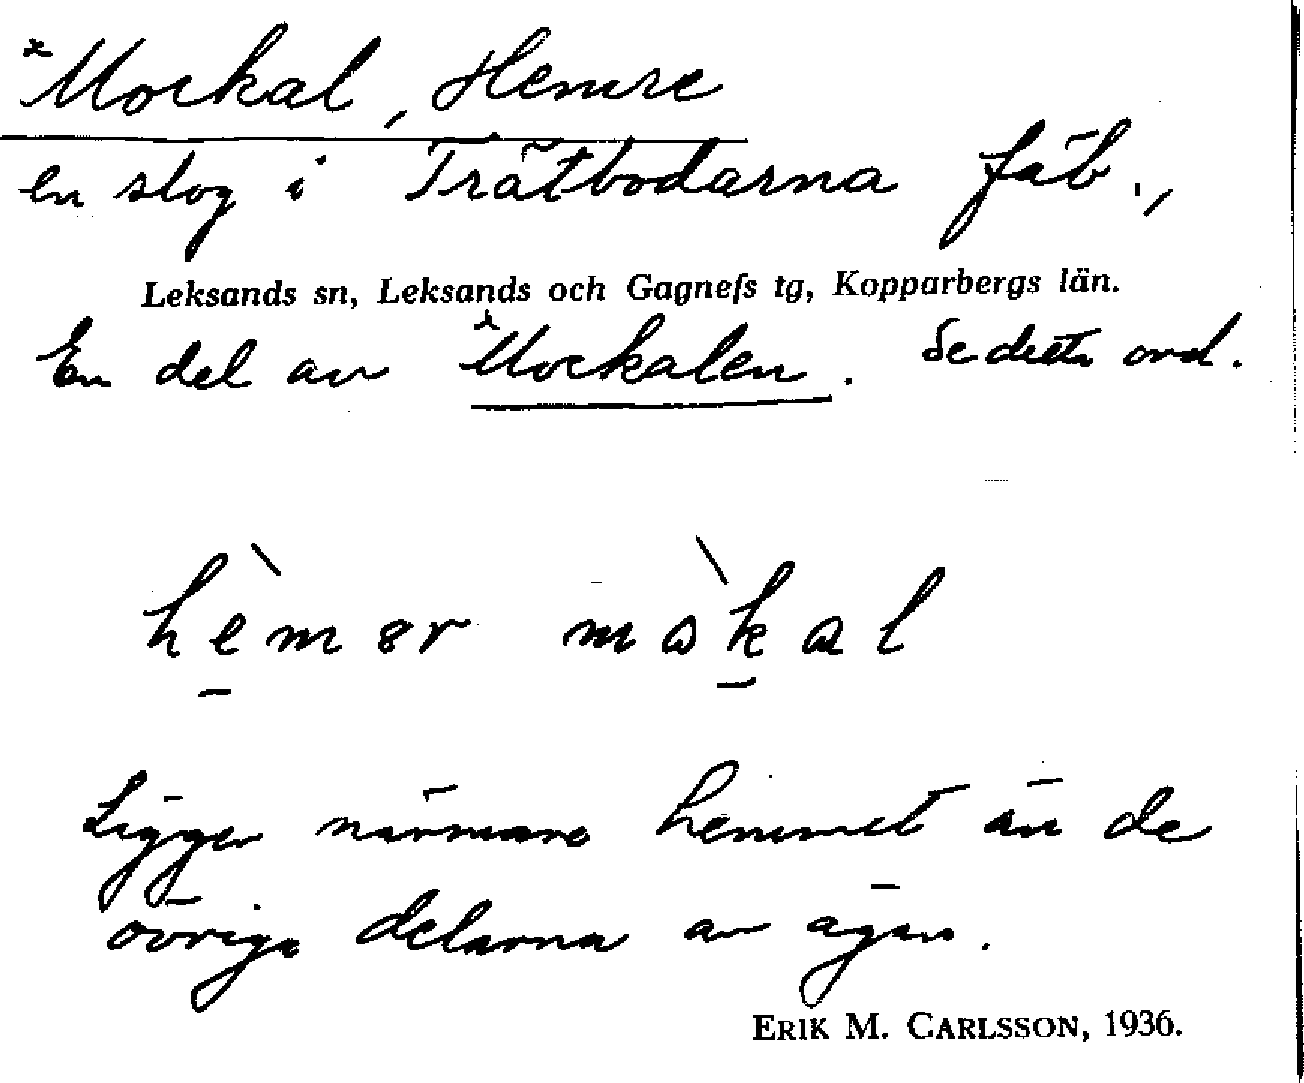 *Mockal, Hemre
en slog i Trätbodarna fäb.,
Leksands sn, Leksands och Gagnefs tg, Kopparbergs län.
En del av *Mockalen. Se detta ord.
hèmər mòkal
Ligger närmare hemmet än de
övriga delarna av ägan.
ERIK M. CARLSSON, 1936.